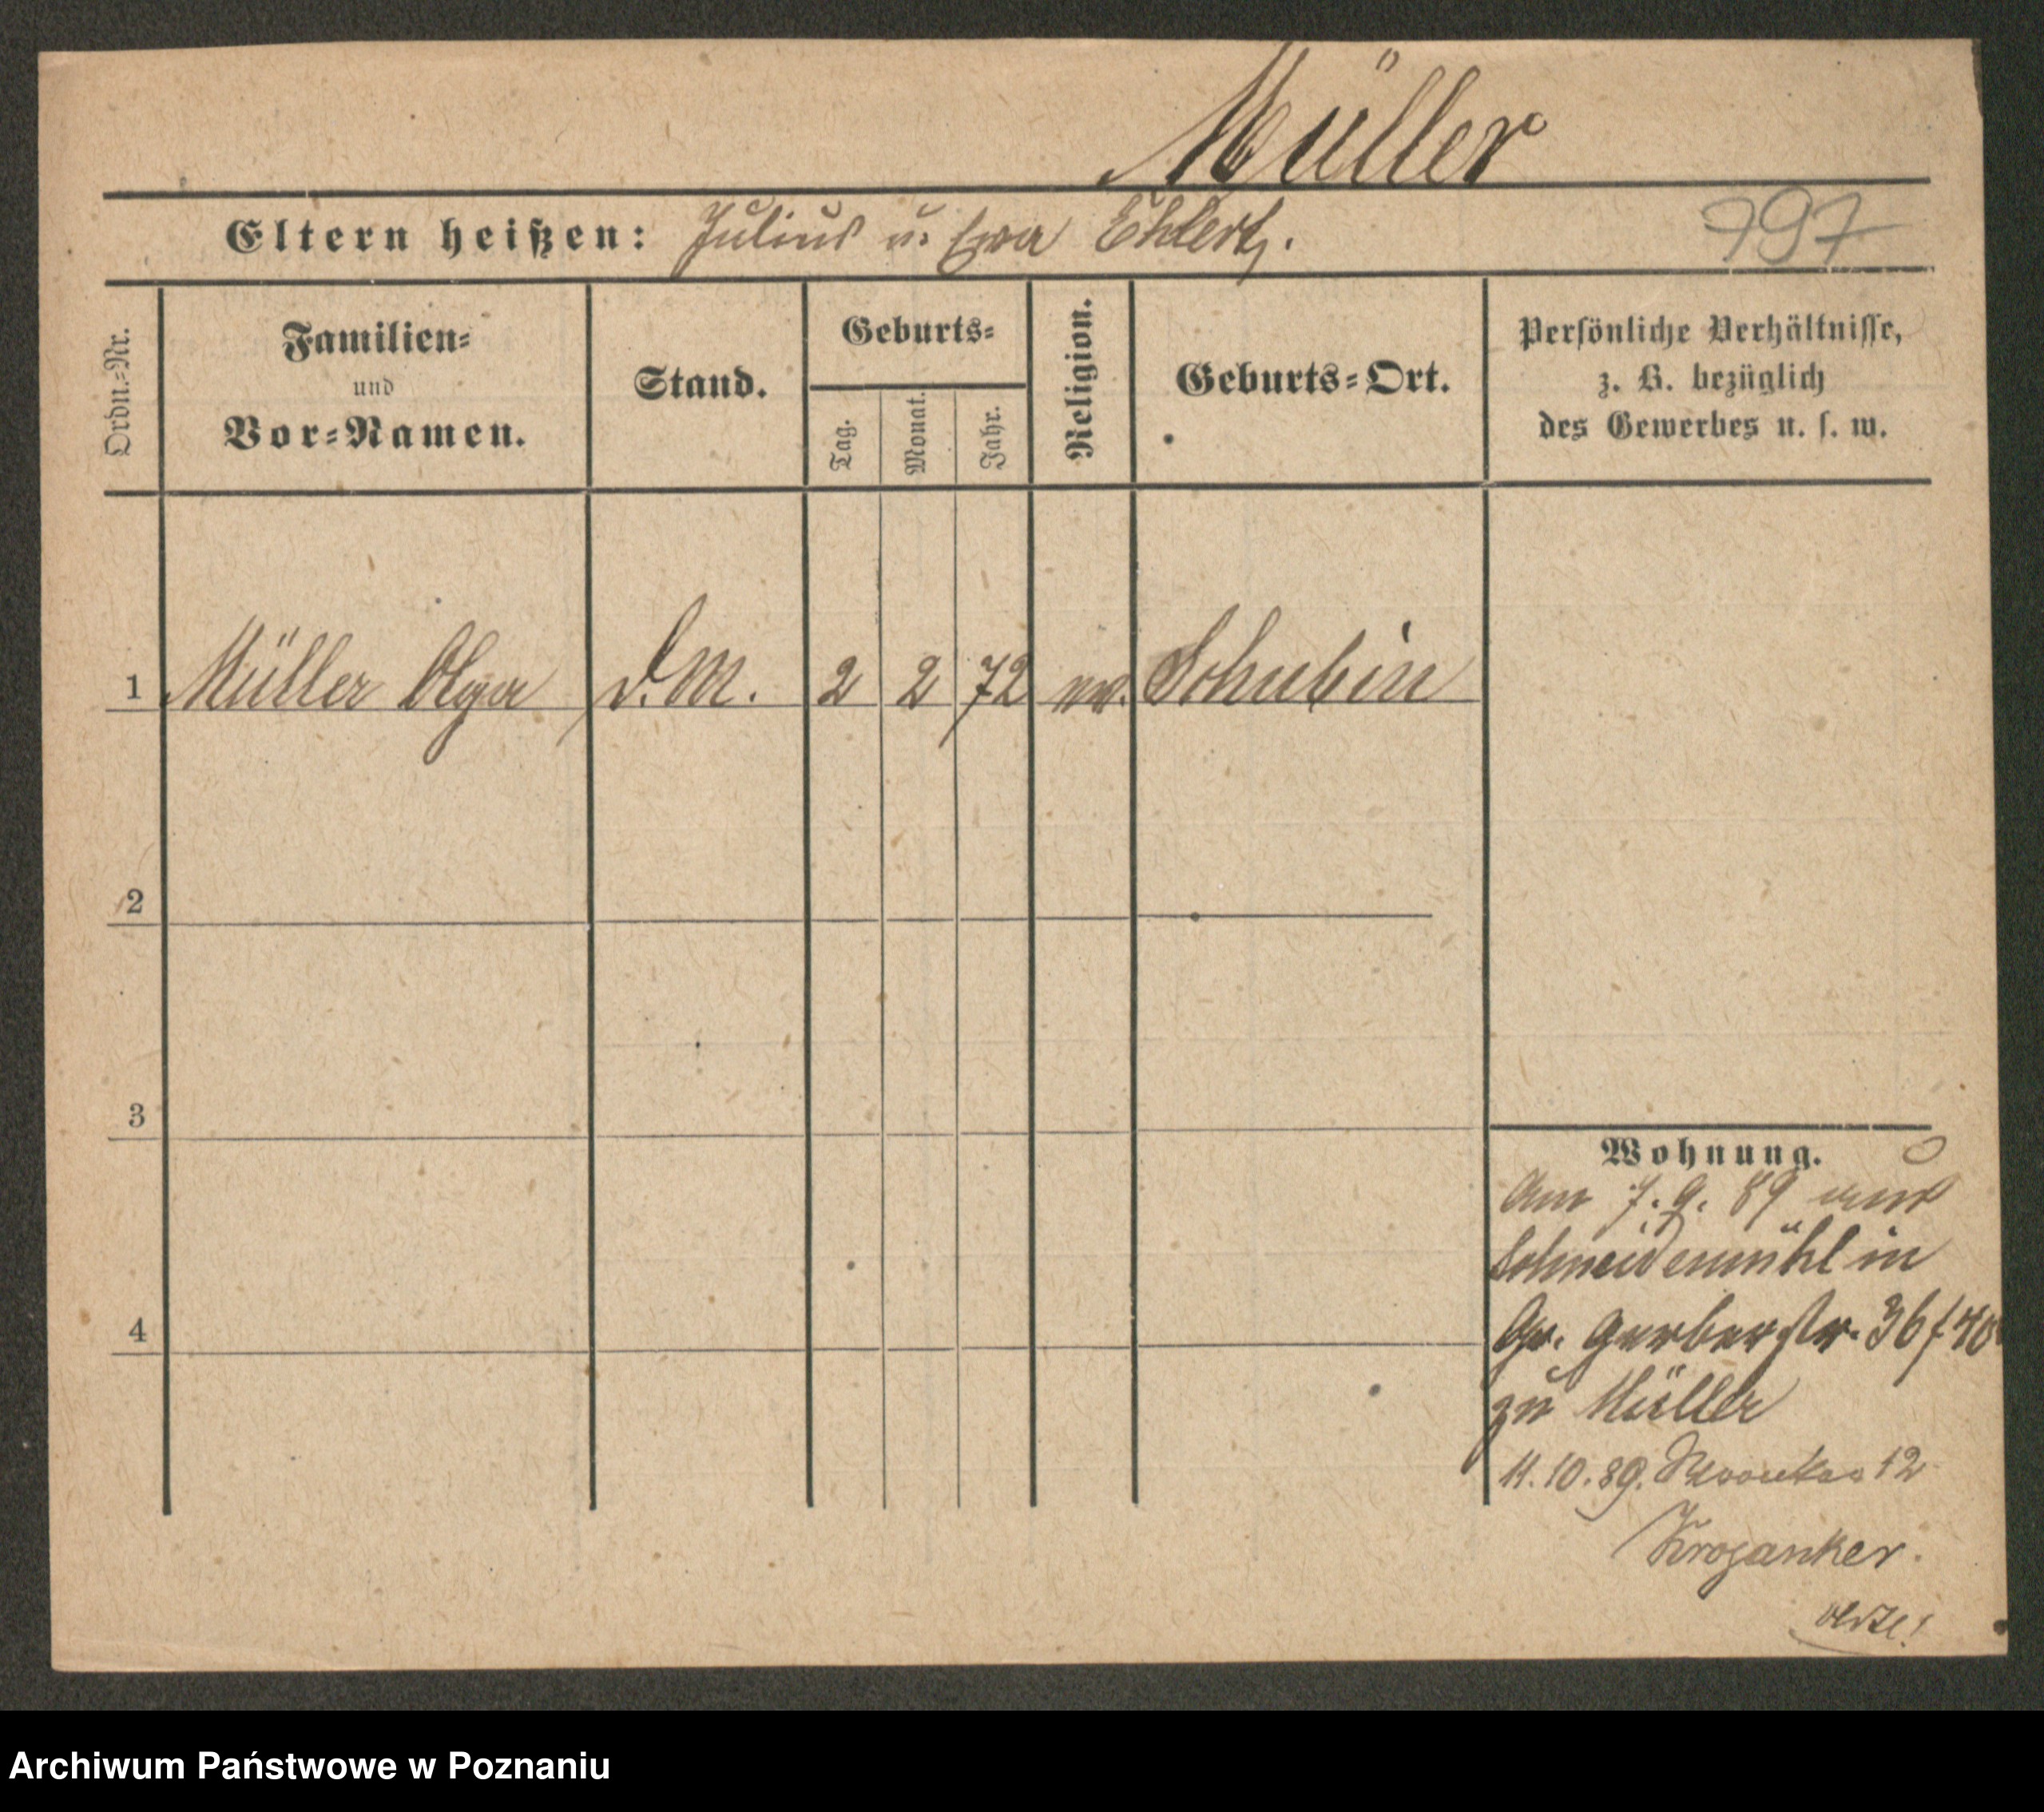 Müller
Eltern heißen: Julius u. Eva Ehlert.
797
Ordn.-Nr.
Familien-
und
Vor-Namen.
Stand.
Geburts-
Tag.
Monat.
Jahr.
Religion.
Geburts-Ort.
Persönliche Verhältnisse,
z. B. bezüglich
des Gewerbes u. s. w.
1 Müller Olga D.M. 2 2 72 ev. Schubin
2
3
4
Wohnung.
Am 7.9.89 aus
Schneidemühl in
Gr. Gerberstr. 36/40
zu Müller
11.10.89. 12
Krojanker.
Archiwum Państwowe w Poznaniu